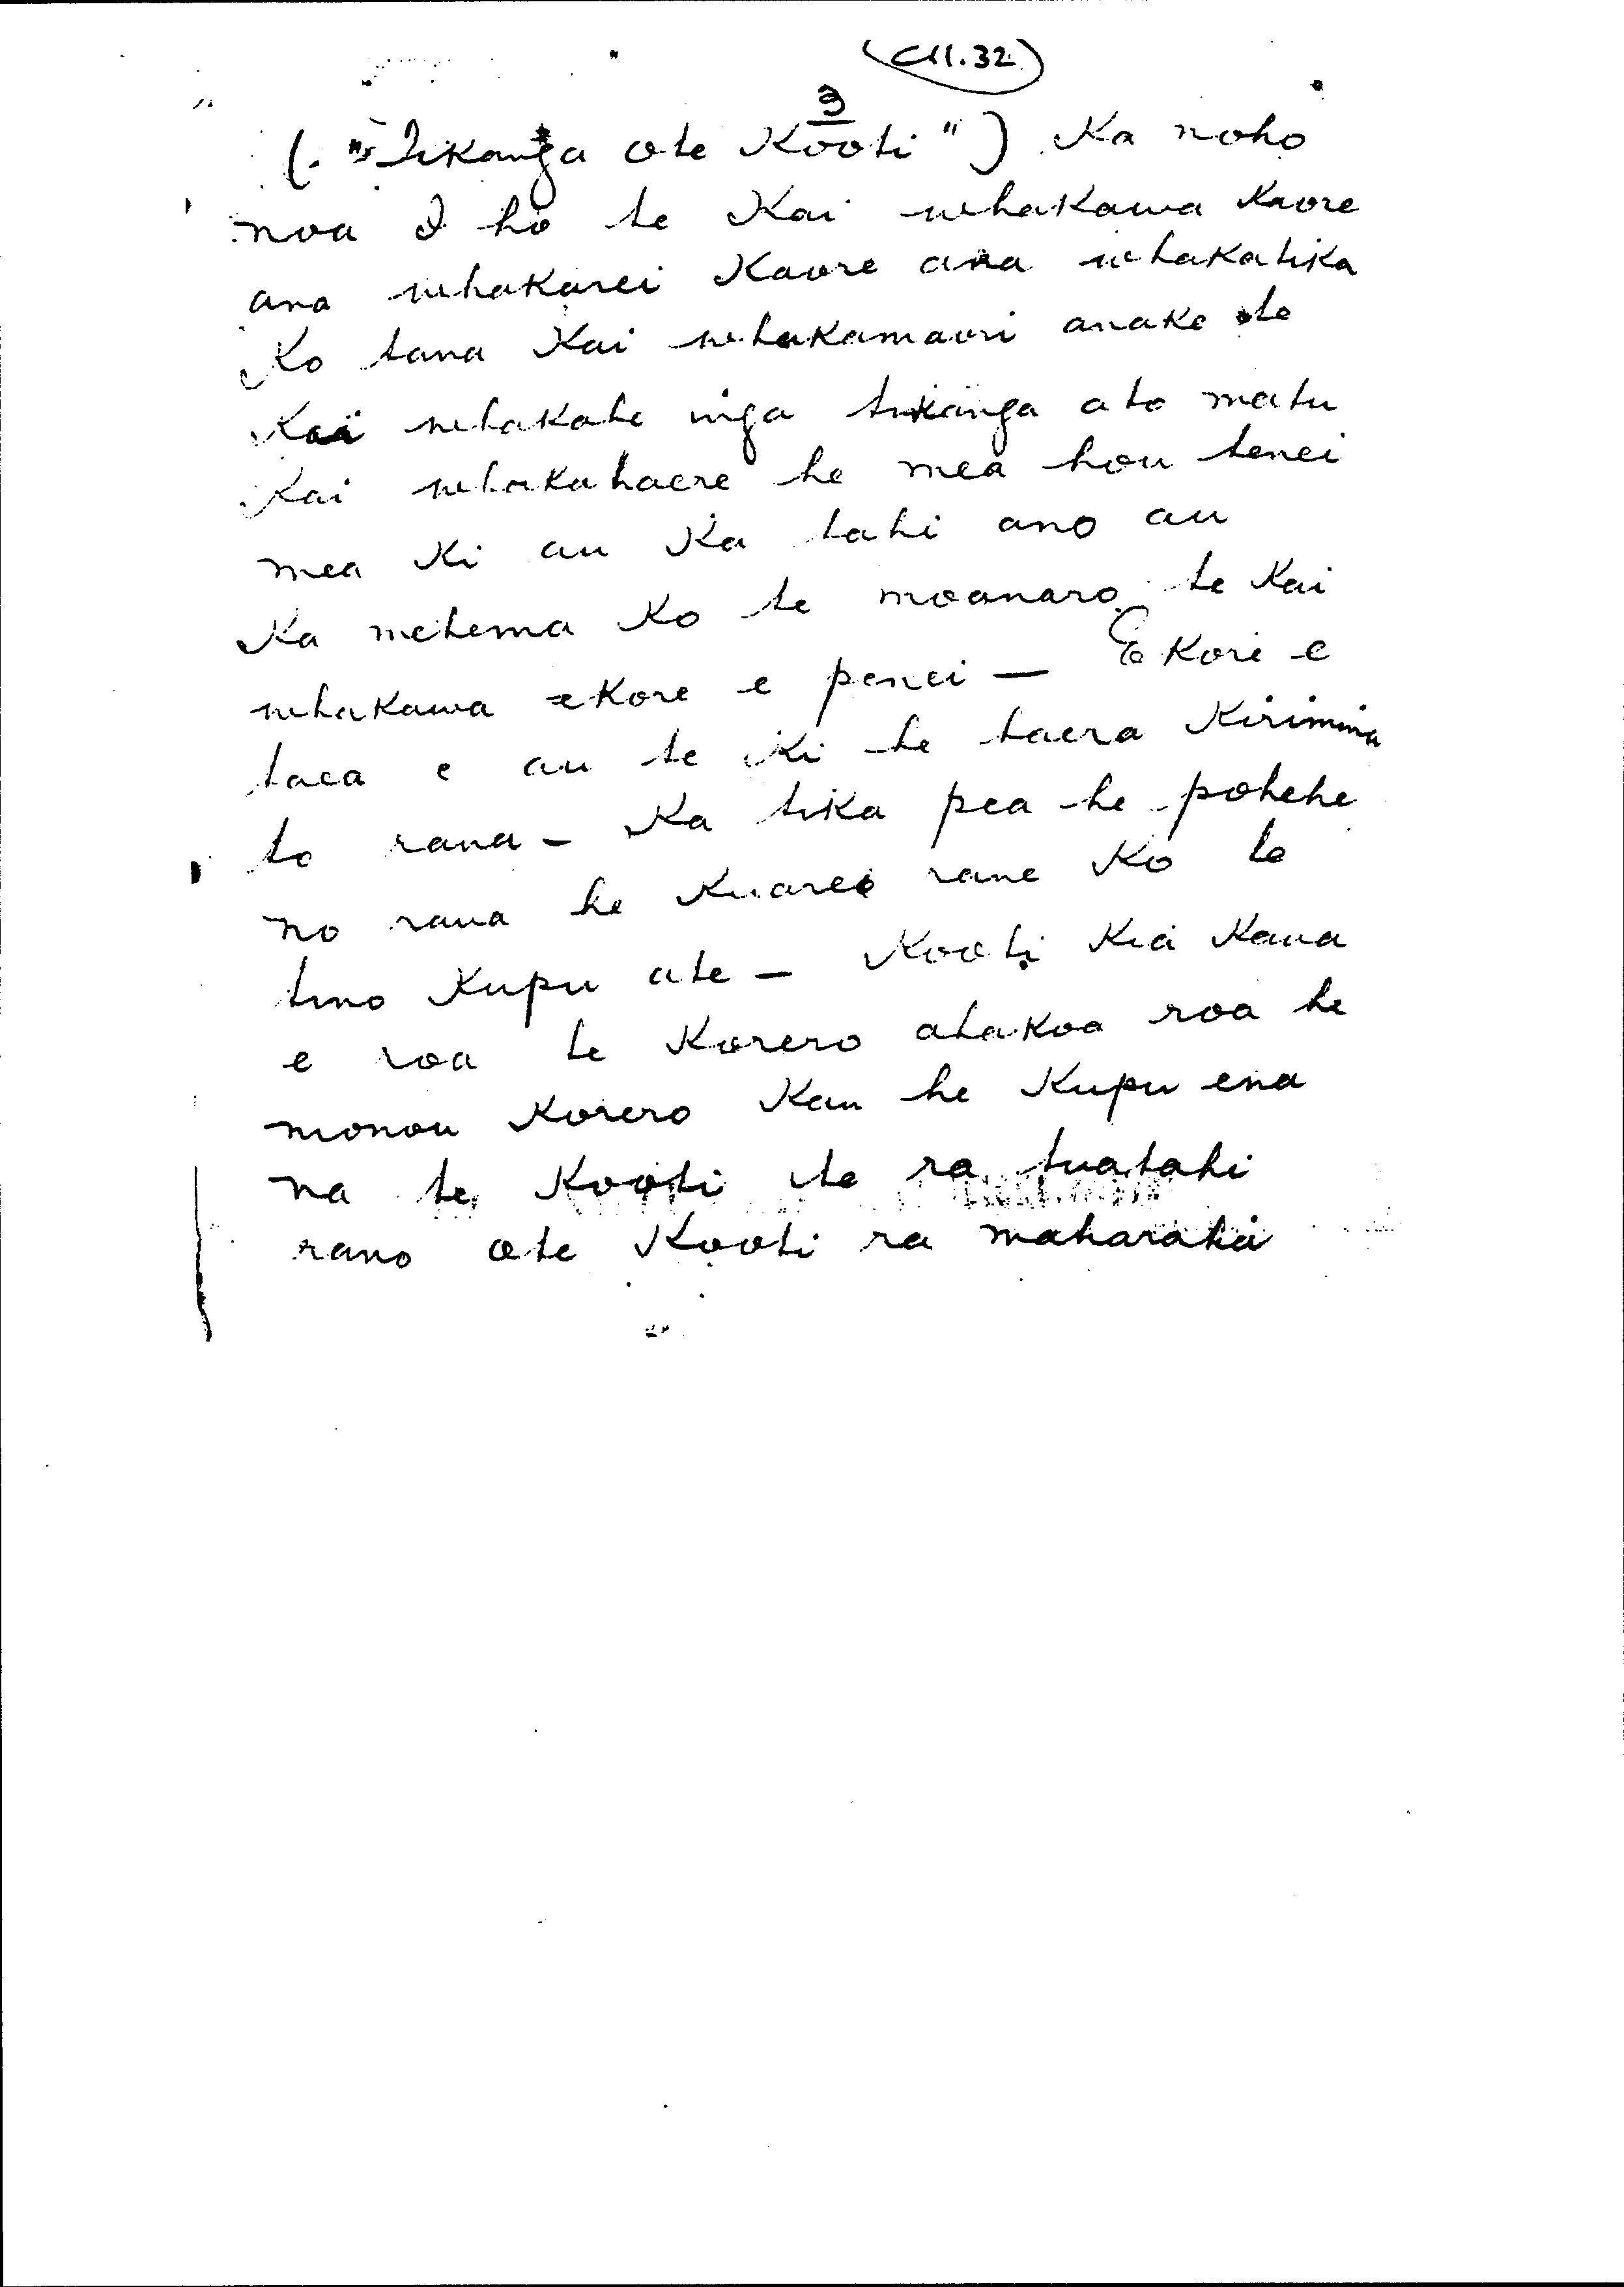 (C11.32)
3
("Tikanga ote Kooti") Ka noho
noa I ho te Kai whakawa Kaore
ana whakarei Kaore ana whakatika
Ko tana Kai whakamaori anake te
Kai whakahe nga tikanga a to matu
Kai whakahaere he mea hou tenei
mea Ki au Ka tahi ano au
Ka metema Ko te moanaro te Kai
whakawa eKore e penei — E Kore e
taea e au te Ki he taera Kirimina
to raua - Ka tika pea he pohehe
no raua he Kuare rane Ko te
tino Kupu ate — Kooti Kia Kaua
e roa te Korero ahakoa roa he
monou Korero Kau he Kupu ena
na te Kooti te ra tuatahi
rano ote Kooti ra maharatia